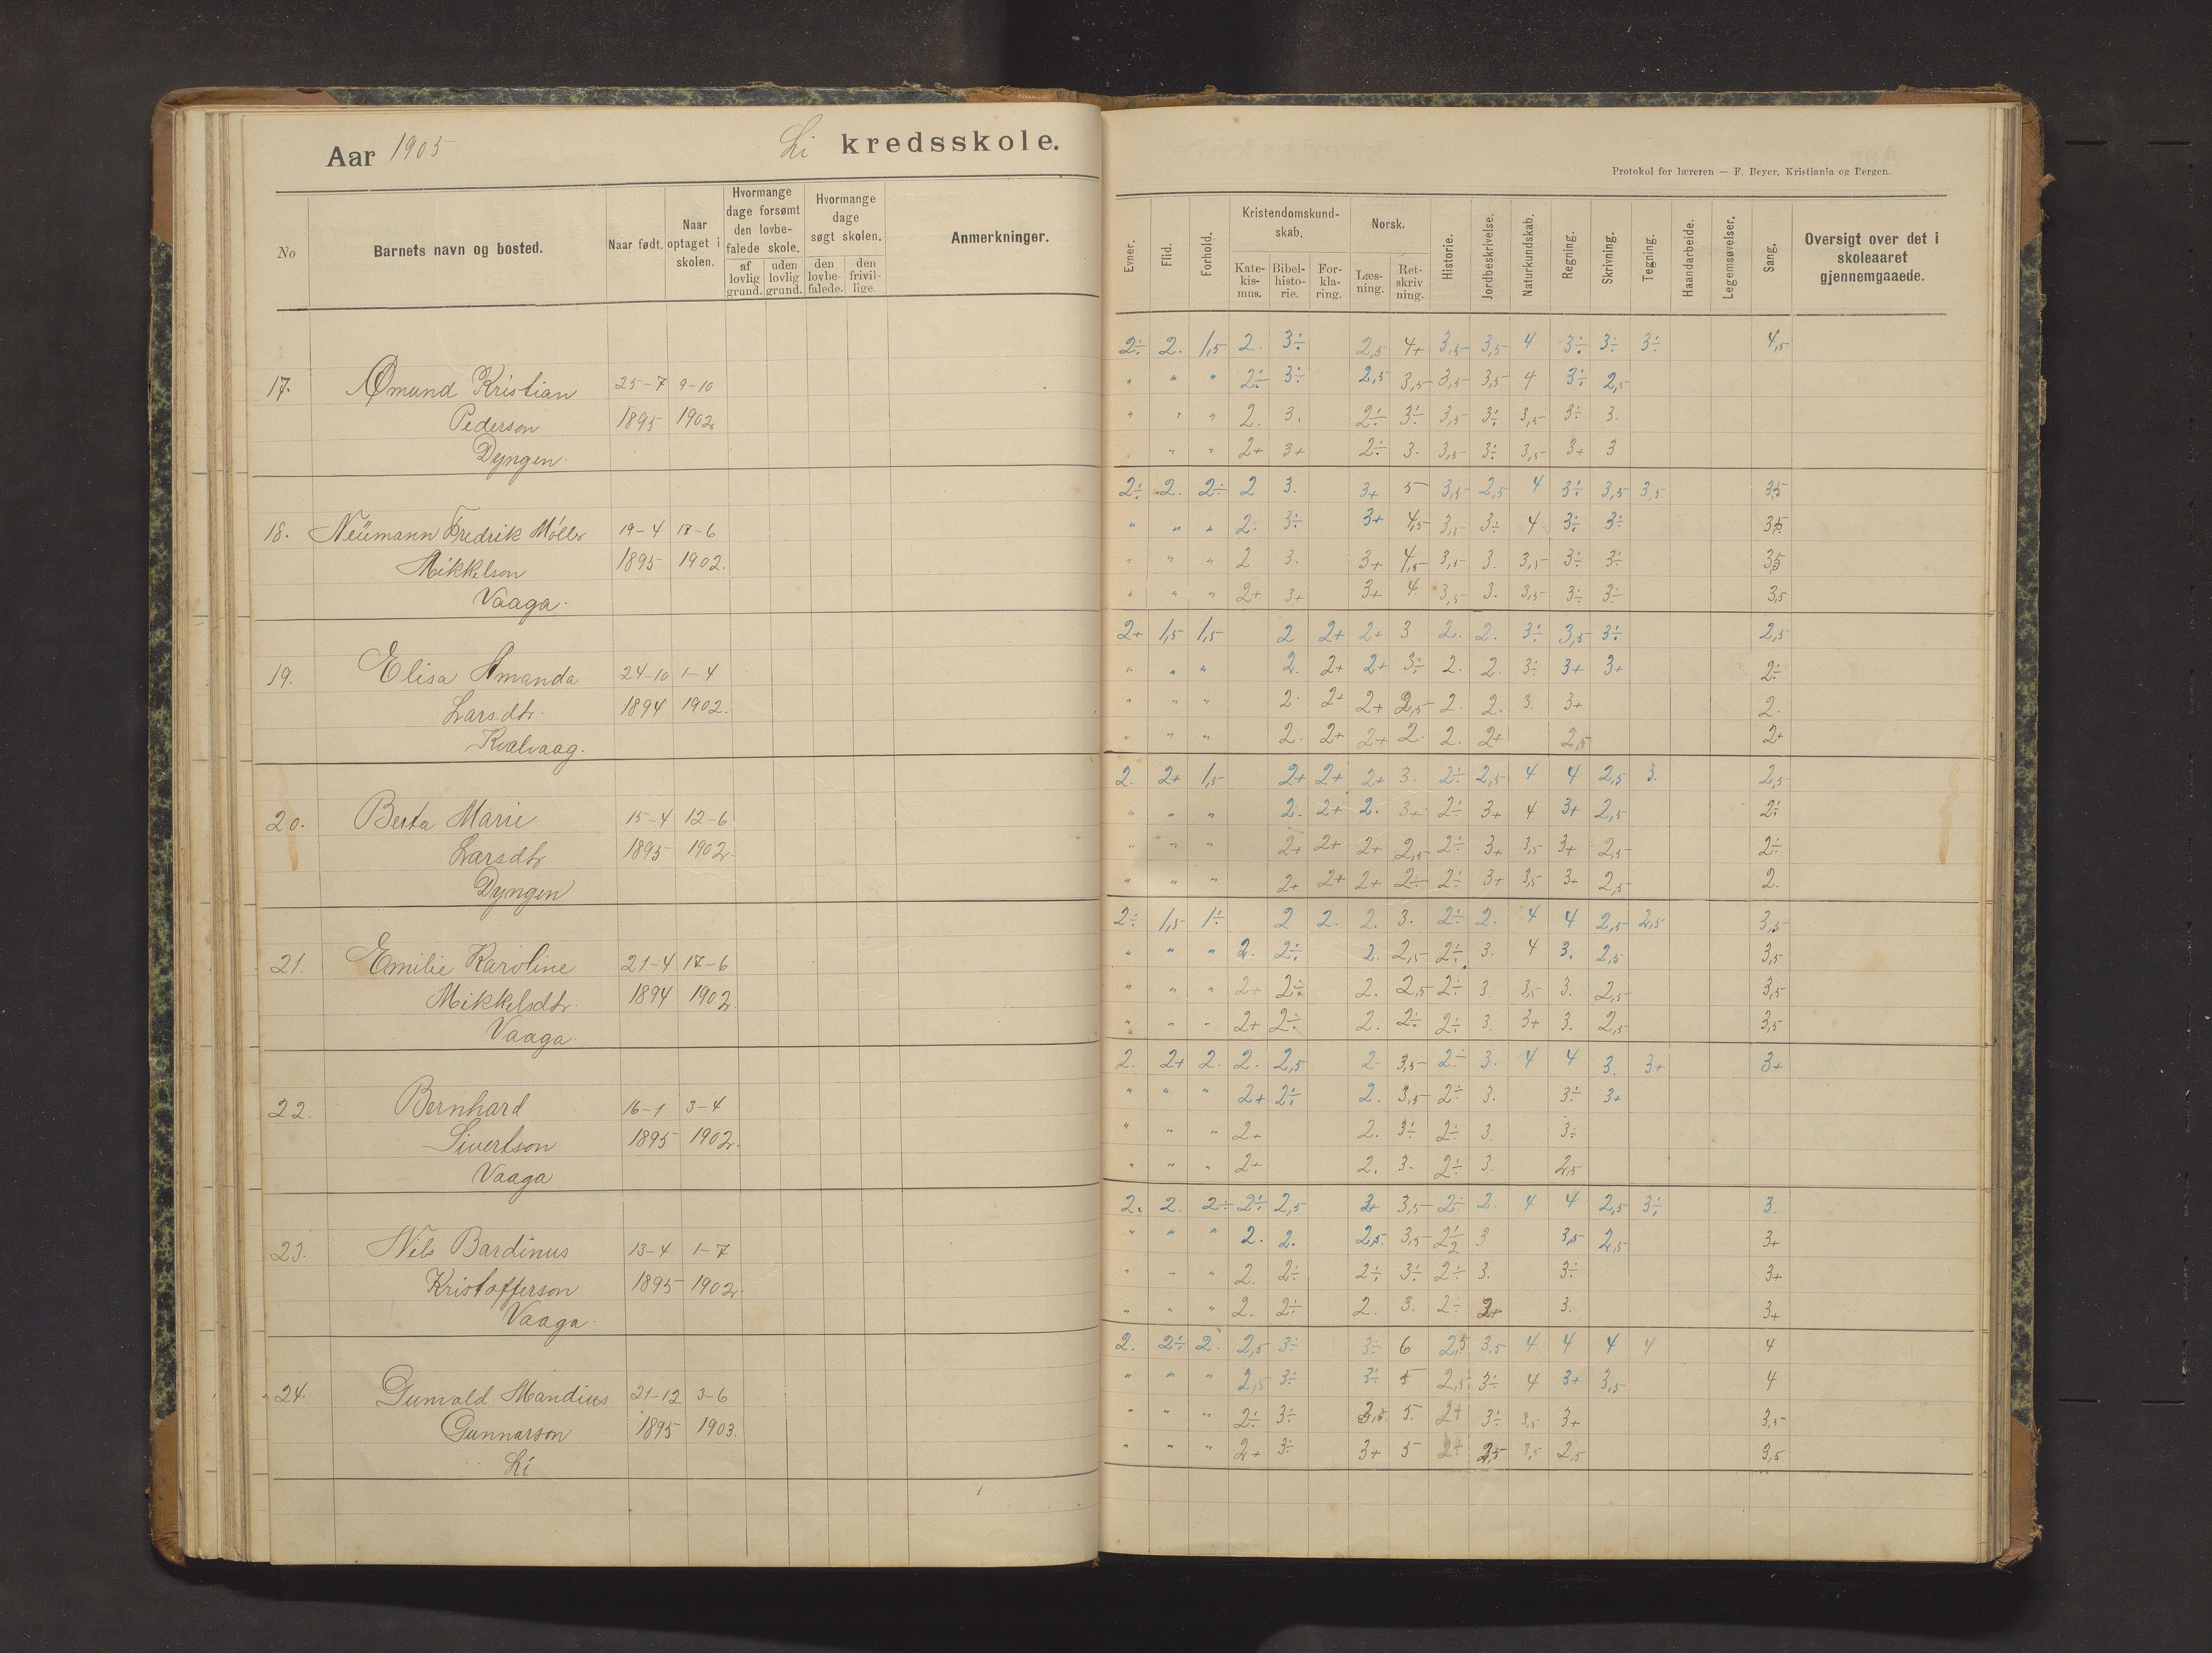 Aar 1905 Li kredsskole.
Protokol for læreren — F. Beyer, Kristiania og Bergen.
No Barnets navn og bosted. Naar født. Naar optaget i skolen. Hvormange dage forsømt den lovbefalede skole. af lovlig grund. uden lovlig grund. Hvormange dage søgt skolen. den lovbefalede. den frivillige. Anmerkninger.
Evner. Flid. Forhold. Kristendomskundskab. Katekismus. Bibelhistorie. Forklaring. Norsk. Læsning. Retskrivning. Historie. Jordbeskrivelse. Naturkundskab. Regning. Skrivning. Tegning. Haandarbeide. Legemsøvelser. Sang. Oversigt over det i skoleaaret gjennemgaaede.
2÷ 2. 1,5 2. 3÷ 2,5 4+ 3,5 3,5 4 3÷ 3÷ 3÷ 4,5
17. Omund Kristian 25-7 9-10 " " " 2÷ 3÷ 2,5 3,5 3,5 3,5 4 3÷ 2,5
Pederson 1895 1902 " " " 2. 3. 2÷ 3÷ 3,5 3÷ 3,5 3÷ 3.
Dyngen. " " " 2+ 3+ 2÷ 3. 3,5 3÷ 3,5 3+ 3
2÷ 2. 2÷ 2 3. 3+ 5 3,5 2,5 4 3÷ 3,5 3,5 3,5
18. Neümann Fredrik Møller 19-4 18-6 " " " 2. 3÷ 3+ 4,5 3,5 3÷ 4 3÷ 3÷ 3,5
Mikkelson 1895 1902. " " " 2 3. 3+ 4,5 3,5 3. 3,5 3÷ 3÷ 3,5
Vaaga. " " " 2+ 3+ 3+ 4 3,5 3. 3,5 3÷ 3÷ 3,5
2+ 1,5 1,5 2 2+ 2+ 3 2. 2. 3÷ 3,5 3÷ 2,5
19. Elisa Amanda 24-10 1-4 " " " 2. 2+ 2+ 3÷ 2. 2. 3÷ 3+ 3+ 2÷
Larsdtr. 1894 1902. " " " 2. 2+ 2+ 2,5 2. 2. 3. 3+ 2.
Kvalvaag. " " " 2. 2+ 2+ 2. 2. 2+ 2,5 2+
2. 2+ 1,5 2+ 2+ 2+ 3. 2÷ 2,5 4 4 2,5 3. 2,5
20. Berta Marie 15-4 12-6 " " " 2. 2+ 2. 3+ 2÷ 3+ 4 3+ 2,5 2÷
Larsdtr 1895 1902. " " " 2+ 2+ 2+ 2,5 2÷ 3+ 3,5 3+ 2,5 2÷
Dyngen " " " 2+ 2+ 2+ 2÷ 2÷ 3+ 3,5 3+ 2,5 2.
2÷ 1,5 1÷ 2 2. 2. 3. 2÷ 2. 4 4 2,5 2,5 3,5
21. Emilie Karoline 21-4 17-6 " " " 2. 2÷ 2. 2,5 2÷ 3. 4 3. 2,5 3,5
Mikkelsdtr. 1894 1902. " " " 2÷ 2÷ 2. 2,5 2÷ 3. 3,5 3. 2,5 3,5
Vaaga. " " " 2+ 2÷ 2. 2÷ 2÷ 3. 3+ 3. 2,5 3,5
2. 2+ 2. 2. 2,5 2 3,5 2÷ 3. 4 4 3. 3+ 3+
22. Bernhard 16-1 3-4 " " " 2+ 2÷ 2. 3,5 2÷ 3. 3÷ 3+
Sivertson 1895 1902. " " " 2+ 2. 3÷ 2÷ 3. 3÷
Vaaga " " " 2+ 2. 3. 2÷ 3. 2,5
2. 2. 2÷ 2÷ 2,5 3+ 3,5 2÷ 2. 4 4 2,5 3÷ 3.
23. Nils Bardinus 13-4 1-7 " " " 2. 2. 2,5 3,5 2÷ 3 3,5 2,5 3+
Kristofferson 1895 1902. " " " 2. 2÷ 2÷ 3÷ 2÷ 3. 3÷ 3+
Vaaga. " " " 2. 2÷ 2. 3. 2÷ 3+ 3. 3+
2. 2÷ 2. 2,5 3÷ 3÷ 6 2,5 3,5 4 4 4 4 4
24. Gunvald Mandius 21-12 3-6 " " " 2,5 3÷ 3÷ 5 2,5 3÷ 4 3+ 3,5 4
Gunnarson 1895 1903. " " " 2÷ 3÷ 3,5 5. 2+ 3÷ 3,5 3+ 3,5
Li " " " 2+ 3÷ 3+ 5 2+ 2,5 3,5 2,5 3,5